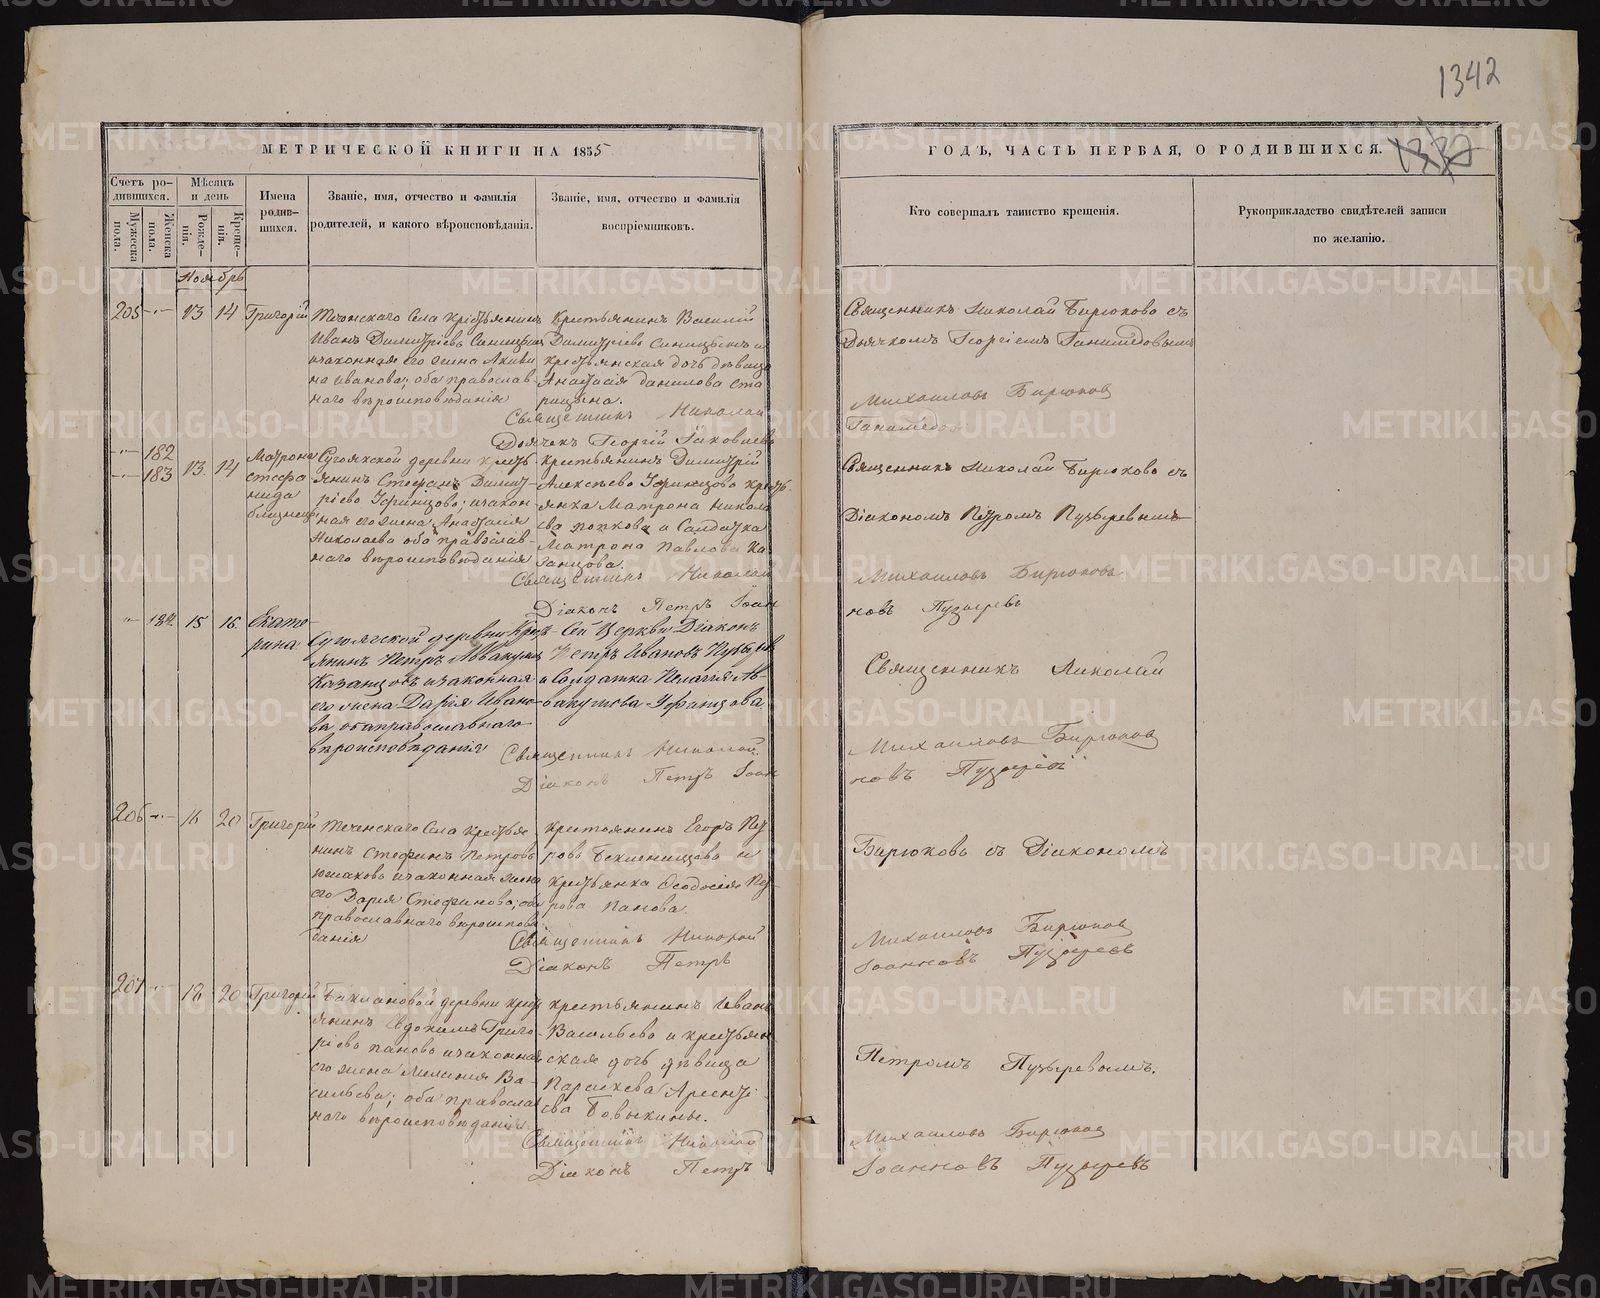 1342
МЕТРИЧЕСКОЙ КНИГИ НА 1855
ГОДЪ, ЧАСТЬ ПЕРВАЯ, О РОДИВШИХСЯ.
Счетъ ро-
дившихся.
Мужеска
пола.
Женска
пола.
Мѣсяцъ
и день
Рожде-
нія.
Креще-
нія.
Имена
родив-
шихся.
Званіе, имя, отчество и фамилія
родителей, и какого вѣроисповѣданія.
Званіе, имя, отчество и фамилія
воспріемниковъ.
Кто совершалъ таинство крещенія.
Рукоприкладство свидѣтелей записи
по желанію.
Ноябрь
205 13 14 Григорій
Теченскаго Села Крестьянинъ
Иванъ Димитріевъ Синицынъ и
законная его жена
на Иванова; оба православ-
наго вѣроисповѣданія
Крестьянинъ Василій
Димитріевъ Синицынъ и
крестьянская дочь дѣвица
Анастасія Данилова Ста
рицына.
Священникъ Николай
Дьячекъ Георгій Іаковлевъ
Священникъ Николай Бирюковъ съ
Дьячкомъ Георгіемъ Ганимедовымъ
Михаиловъ Бирюковъ
Ганимедовъ
182
183 13 14
Матрона
Стефа
нида
близнецы
Сугоякской деревни крестъ-
янинъ Стефанъ Димит-
ріевъ Уфинцовъ; и закон-
ная его жена Анастасія
Николаева оба православ-
наго вѣроисповѣданія
Крестьянинъ Димитрій
Алексѣевъ Уфинцовъ кресть-
янка Матрона Никола
ева Попкова и Солдатка
Матрона Павлова Ка-
занцова.
Священникъ Николай
Діаконъ Петръ Іоан
Священникъ Николай Бирюковъ съ
Діакономъ Петромъ Пузыревымъ
Михаиловъ Бирюковъ
новъ Пузыревъ
184 15 16
Екате-
рина
Сугоякской деревни Крест-
янинъ Петръ Аввакумовъ
Казанцовъ и законная
его жена Дарія Ивано-
ва, оба православнаго
вѣроисповѣданія
Сей Церкви Діаконъ
Петръ Ивановъ Пузыревъ
и Солдатка Пелагія Ав-
вакумова Уфинцова
Священникъ Николай
Діаконъ Петръ Іоан
Священникъ Николай
Михаиловъ Бирюковъ
новъ Пузыревъ
206 16 20 Григорій
Теченскаго Села Крестья
нинъ Стефанъ Петровъ
Южаковъ и законная жена
его Дарія Стефанова; оба
православнаго вѣроисповѣ
данія
Крестьянинъ Егоръ Пет-
ровъ и
крестьянка Ѳеодосія Пет-
рова Панова.
Священникъ Николай
Діаконъ Петръ
Бирюковъ съ Діакономъ
Михаиловъ Бирюковъ
Іоанновъ Пузыревъ
207 18 20 Григорій
Баклановой деревни крест
янинъ Евдокимъ Григо-
ріевъ Пановъ и законная
его жена Меланія Ва-
сильева; оба православ
наго вѣроисповѣданія.
крестьянинъ Иванъ
Васильевъ и крестьян
ская дочь дѣвица
Параскева Арсенті
ева Бовыкины.
Священникъ Николай
Діаконъ Петръ
Петромъ Пузыревымъ.
Михаиловъ Бирюковъ
Іоанновъ Пузыревъ
METRIKI.GASO-URAL.RU